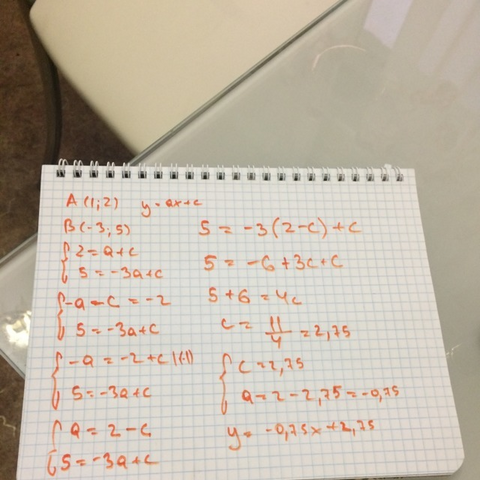 A(1;2) y=ax+c
B(-3;5)
{2=a+c
5=-3a+c
{-a-c=-2
5=-3a+c
{-a=-2+c |(-1)
5=-3a+c
{a=2-c
5=-3a+c
5=-3(2-c)+c
5=-6+3c+c
5+6=4c
c=11/4=2,75
{c=2,75
a=2-2,75=-0,75
y=-0,75x+2,75